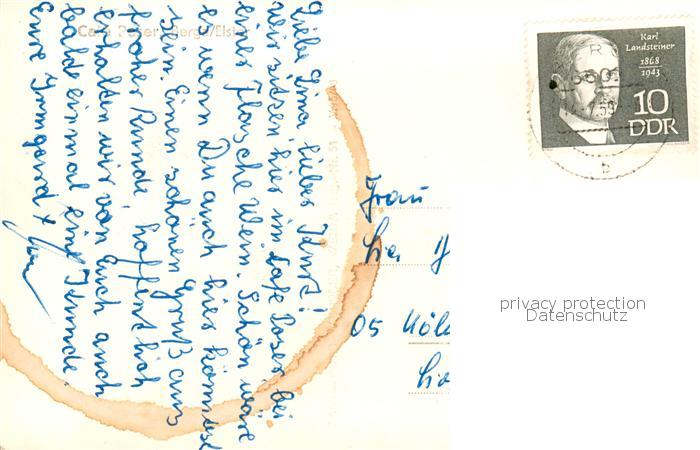 Café Poser, Berga/Elster
Liebe Lina, lieber Kurt!
wir sitzen hier im Cafe Poser bei
einer Flasche Wein. Schön wäre
es wenn Du auch hier könntest
sein. Einen schönen Gruß aus
froher Runde, hoffentlich
erhalten wir von Euch auch
bald einmal eine Stunde.
Eure Irmgard +
Karl
Landsteiner
1868
1943
10
DDR
Frau
05 Köl
privacy protection
Datenschutz